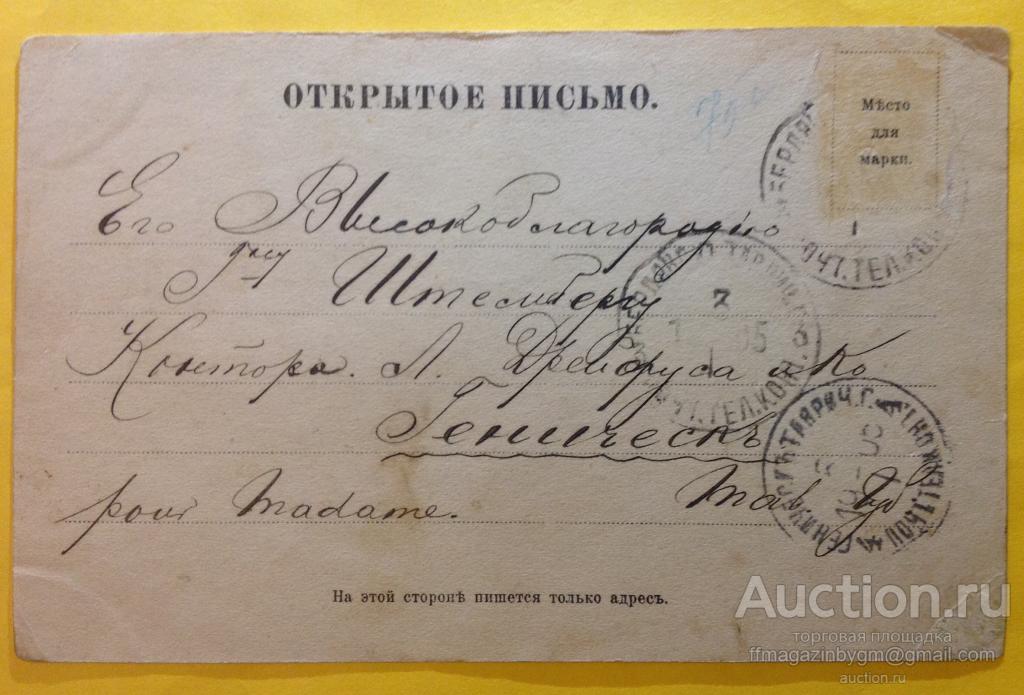 ОТКРЫТОЕ ПИСЬМО.
Мѣсто
для
марки.
Его Высокоблагородію
Гдну Штембергу
Контора Л. Дрейфуса и Ко
Геническъ
pour Madame.
Тав. губ
ПОЧТ.ТЕЛ.КОН.
ПОЧТ.ТЕЛ.КОН. 3
На этой сторонѣ пишется только адресъ.
Auction.ru
торговая площадка
ffmagazinbygm@gmail.com
auction.ru